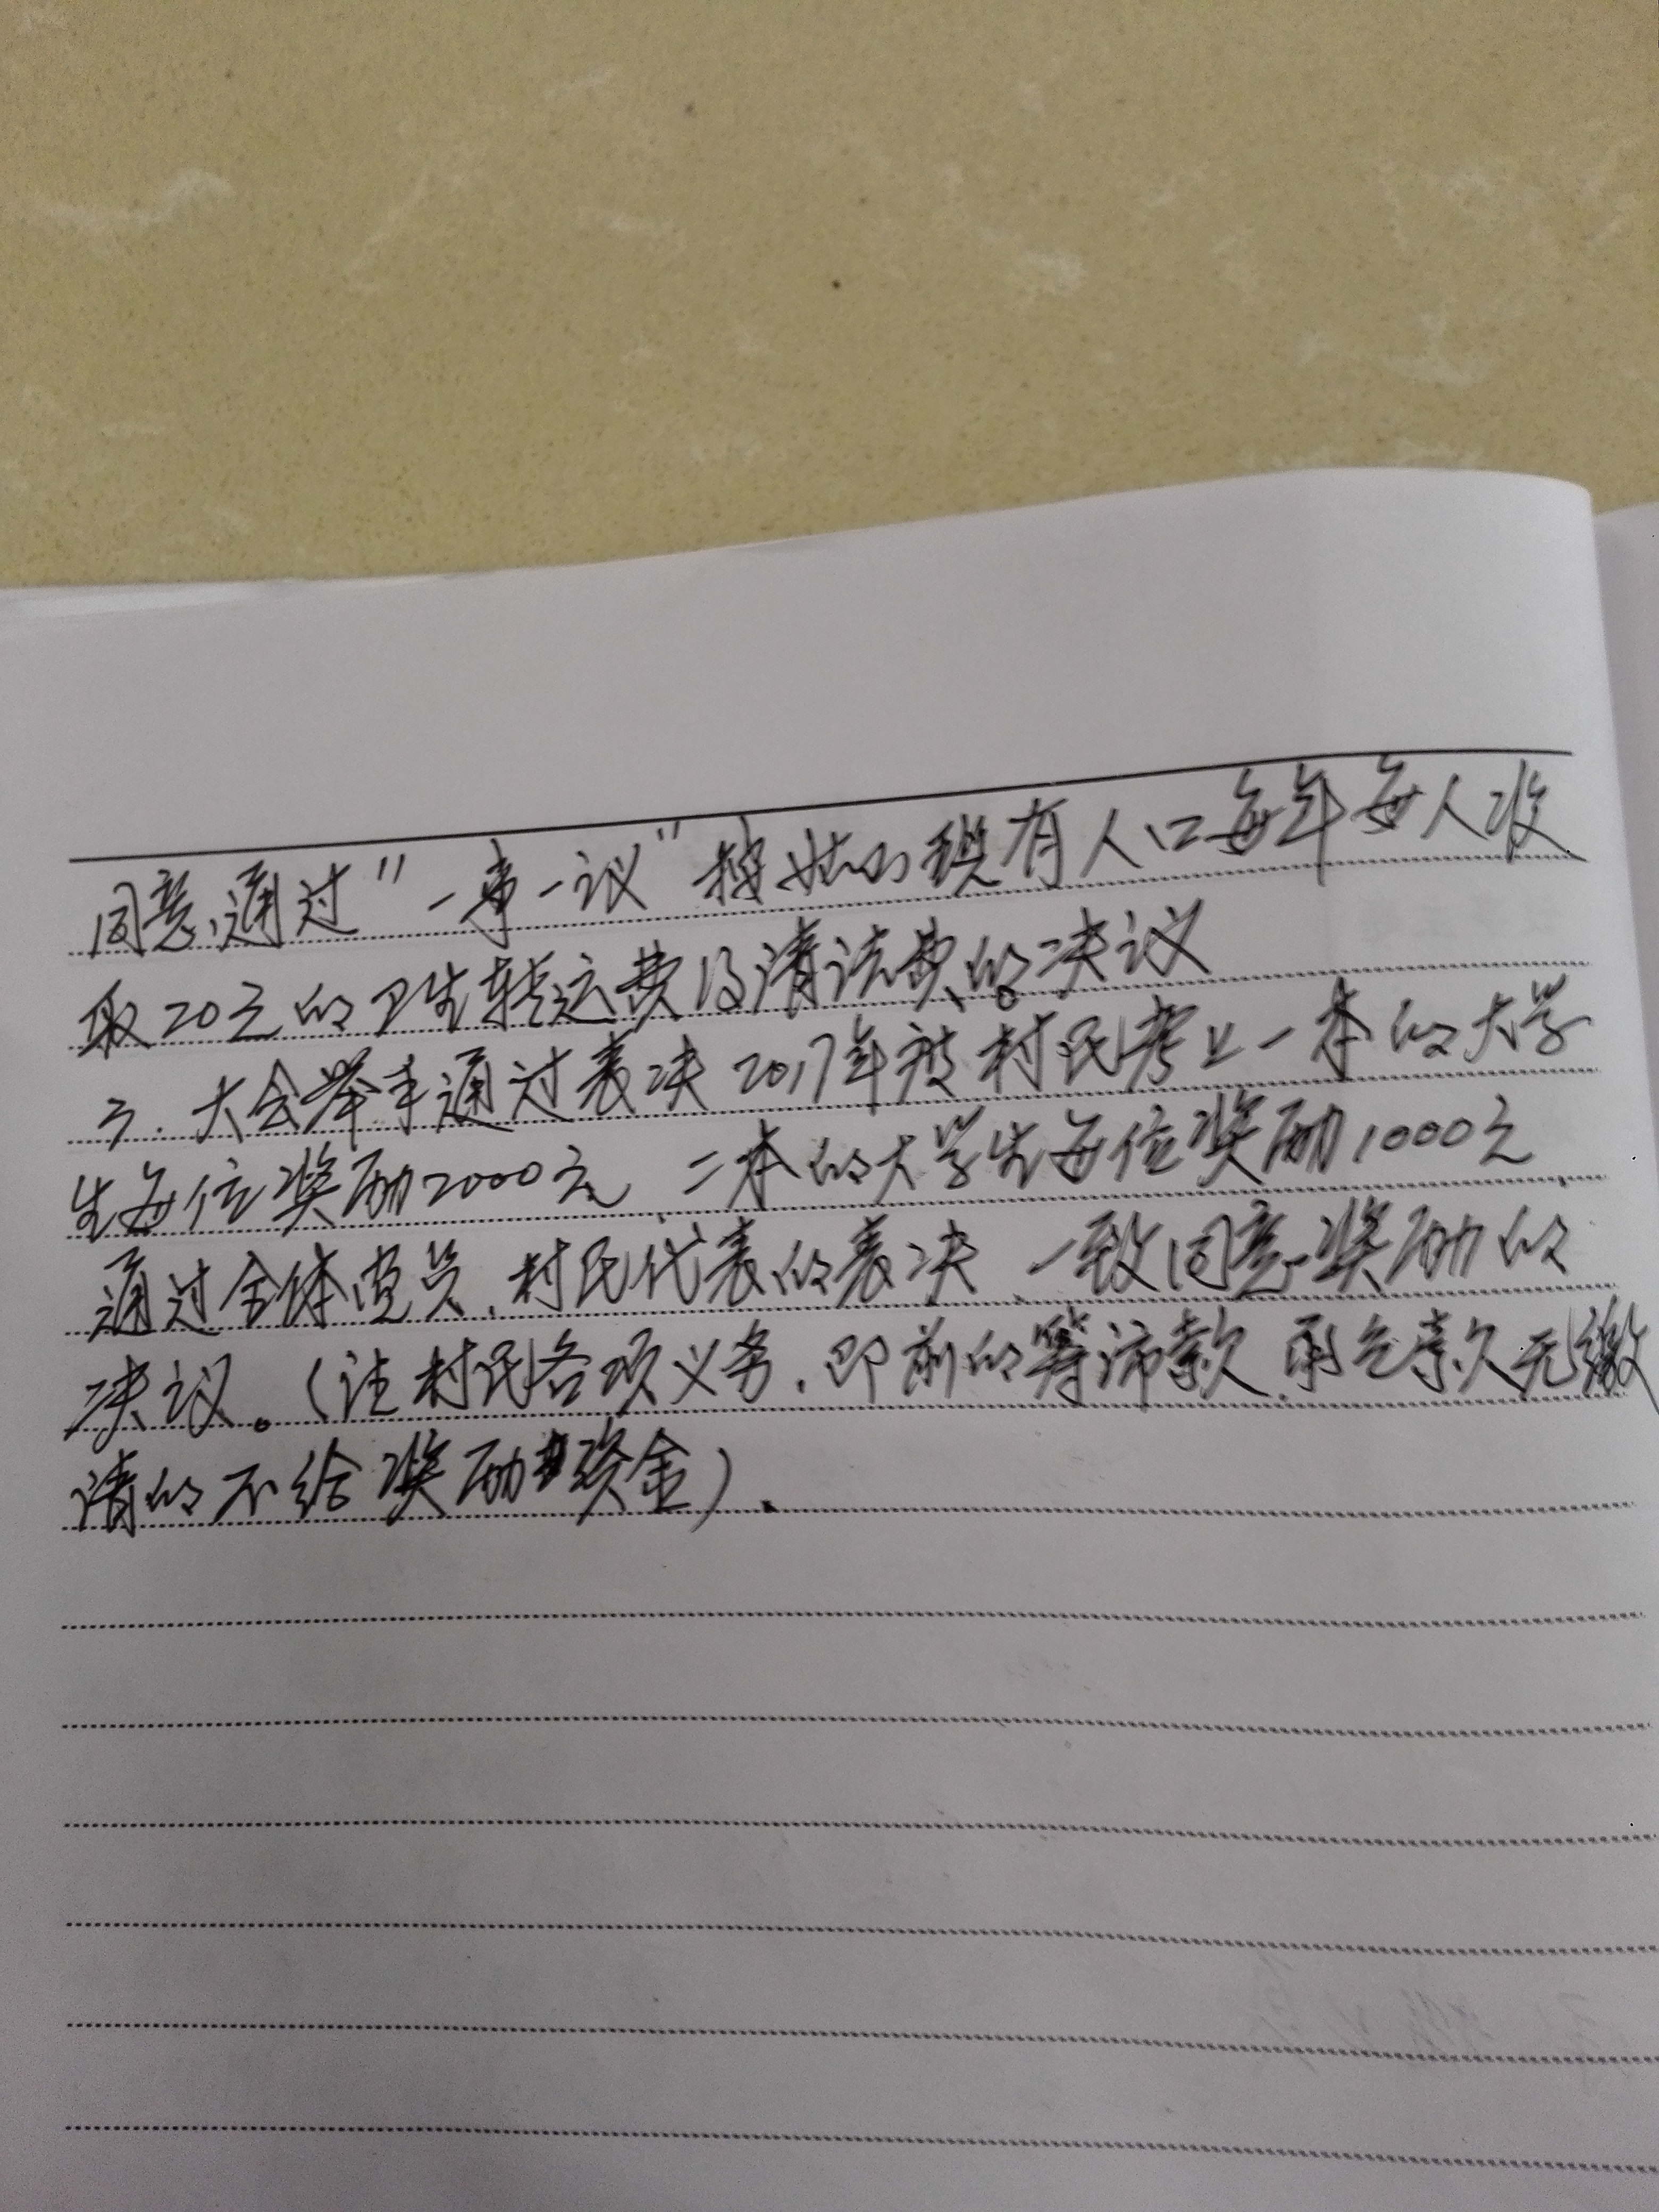 同意,通过"一事一议"按 现有人口每年每人收
取20元的卫生转运费及清洁费的决议
3.大会举手通过表决2017年被村民考上一本的大学
生每位奖励2000元、二本的大学生每位奖励1000元
通过全体党员、村民代表的表决、一致同意奖励的
决议。(注村民各项义务,即前的筹 款 无缴
清的不给奖励资金).